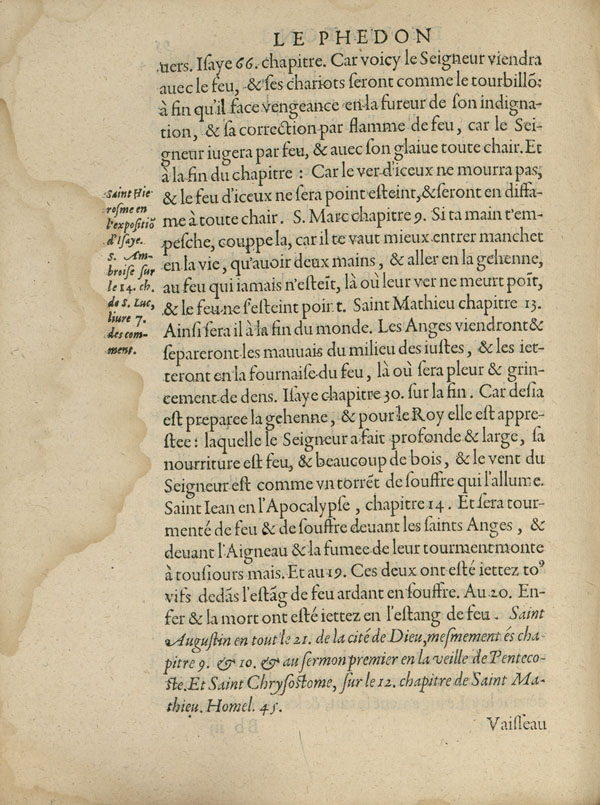 LE PHEDON
uers. Iſaye 66. chapitre. Car voicy le Seigneur viendra
auec le feu, & ſes chariots ſeront comme le tourbillõ:
à fin qu'il face vengeance en la fureur de ſon indigna-
tion, & ſa correction par flamme de feu, car le Sei-
gneur iugera par feu, & auec ſon glaiue toute chair. Et
à la fin du chapitre : Car le ver d'iceux ne mourra pas,
& le feu d'iceux ne ſera point eſteint, & ſeront en diffa-
me à toute chair. S. Marc chapitre 9. Si ta main t'em-
peſche, couppe la, car il te vaut mieux entrer manchet
en la vie, qu'auoir deux mains, & aller en la gehenne,
au feu qui iamais n'eſteĩt, là où leur ver ne meurt poĩt,
& le feu ne ſ'eſteint point. Saint Mathieu chapitre 13.
Ainſi ſera il à la fin du monde. Les Anges viendront &
ſepareront les mauuais du milieu des iuſtes, & les iet-
teront en la fournaiſe du feu, là où ſera pleur & grin-
cement de dens. Iſaye chapitre 30. ſur la fin. Car deſia
eſt preparee la gehenne, & pour le Roy elle eſt appre-
ſtee : laquelle le Seigneur a fait profonde & large, ſa
nourriture eſt feu, & beaucoup de bois, & le vent du
Seigneur eſt comme vn torrẽt de ſouffre qui l'allume.
Saint Iean en l'Apocalypſe, chapitre 14. Et ſera tour-
menté de feu & de ſouffre deuant les ſaints Anges, &
deuant l'Aigneau & la fumee de leur tourment monte
à touſiours mais. Et au 19. Ces deux ont eſté iettez toꝰ
vifs dedãs l'eſtãg de feu ardant en ſouffre. Au 20. En-
fer & la mort ont eſté iettez en l'eſtang de feu. Saint
Auguſtin en tout le 21. de la cité de Dieu, meſmement és cha-
pitre 9. & 10. & au ſermon premier en la veille de Penteco-
ſte. Et Saint Chryſoſtome, ſur le 12. chapitre de Saint Ma-
thieu. Homel. 45.
Vaiſſeau
Saint Hie-
roſme en
l'expoſitiõ
d'Iſaye.
S. Am-
broiſe ſur
le 14. ch.
de S. Luc,
liure 7.
des com-
ment.